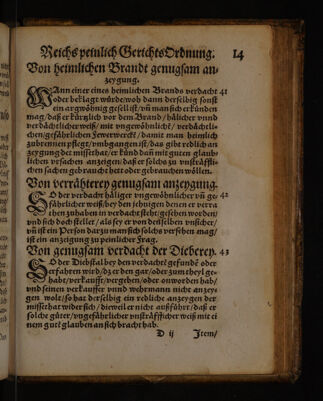 Reichs peinlich Gerichts Ordnung. 14
Von heimlichen Brandt genugsam an-
zeygung.
WAnn einer eines heimlichen Brands verdacht 41
oder beklagt würde/woh dann derselbig sonst
ein argwöhnig gesell ist/vñ man sich erkünden
mag/daß er kürzlich vor dem Brand/hälicher vnnd
verdächtlicher weiß/mit vngewöhnlicht/verdächtli-
chen/gefährlichen Fewerwerckt/damit man heimlich
zubrennen pflegt/vmbgangen ist/das gibt redlich an
zeygung der missethat/er künd dañ mit guten glaub-
lichen vrsachen anzeigen/daß er solchs zu vnsträffli-
chen sachen gebraucht hett oder gebrauchen wöllen.
Von verrähterey genugsam anzeygung.
SO der verdacht häliger vngewöhnlicher vñ ge- 42
fährlicher weiß bey den jenigen denen er verra
then zuhaben in verdacht steht/gesehen worden/
vnd sich doch stellet/als sey er von denselben vnsicher/
vñ ist ein Person darzu man sich solchs versehen mag/
ist ein anzeigung zu peinlicher Frag.
Von genugsam verdacht der Dieberey. 43
SO der Diebstal bey den verdacht gefundē oder
erfahren wird/dz er den gar/oder zum theyl ge-
habt/verkaufft/vergeben/oder onworden hab/
vnd seinen verkauffer vnnd wehrmann nicht anzey-
gen wolt/so hat derselbig ein redliche anzeygen der
missethat wider sich/dieweil er nicht außführt/daß er
solche güter/vngefährlicher vnsträfflicher weiß mit ei
nem gutē glauben an sich bracht hab.
D ij Item/